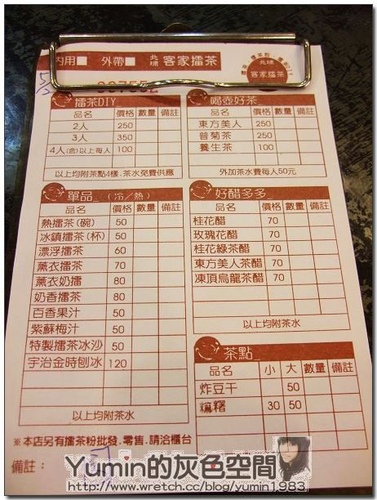 內用 外帶 北埔 客家擂茶
007552
擂茶DIY
品名 價格 數量 備註
2人 250
3人 350
4人(含)以上每人 100
以上均附茶點4樣,茶水免費供應
喝壺好茶
品名 價格 數量 備註
東方美人 250
普菊茶 250
養生茶 100
外加茶水費每人50元
單品 (冷/熱)
品名 價格 數量 備註
熱擂茶(碗) 50
冰鎮擂茶(杯) 50
漂浮擂茶 60
薰衣擂茶 70
薰衣奶擂 80
奶香擂茶 80
百香果汁 50
紫蘇梅汁 50
特製擂茶冰沙 50
宇治金時刨冰 120
以上均附茶水
好醋多多
品名 價格 數量 備註
桂花醋 70
玫瑰花醋 70
桂花綠茶醋 70
東方美人茶醋 70
凍頂烏龍茶醋 70
以上均附茶水
茶點
品名 小 大 數量 備註
炸豆干 50
麻糬 30 50
※本店另有擂茶粉批發、零售,請洽櫃台
備註:
Yumin的灰色空間
http://www.wretch.cc/blog/yumin1983